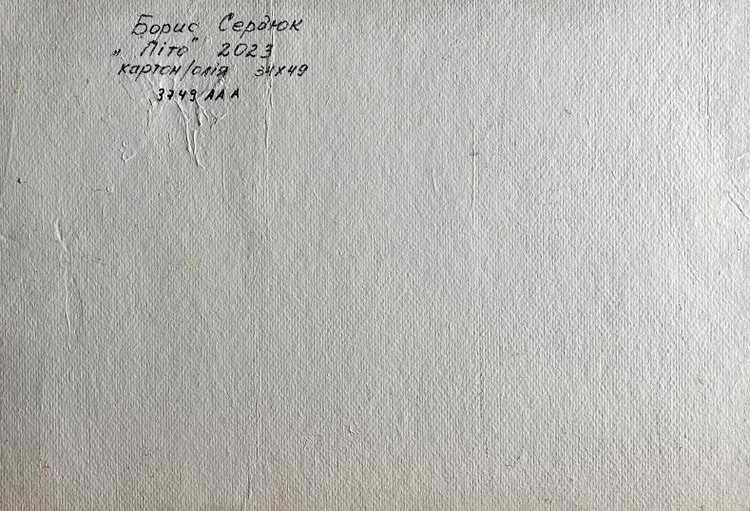 Борис Сердюк
„Літо" 2023
картон/олія 34х49
3749 ААА